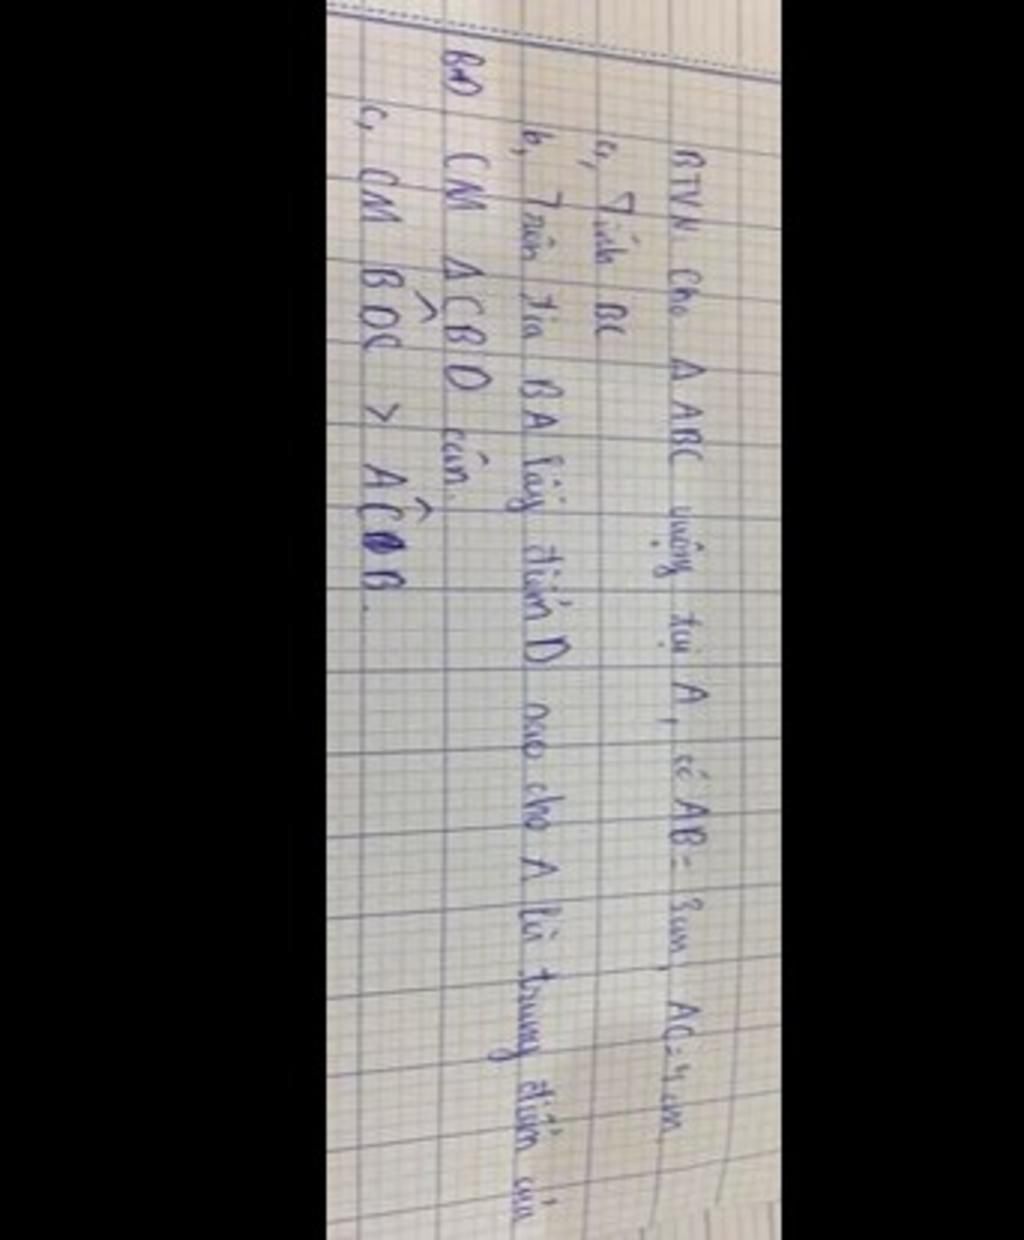 BTVN. Cho Δ ABC vuông tại A, có AB = 3cm, AC = 4cm
a, Tính BC
b, Trên tia BA lấy điểm D sao cho A là trung điểm của
BD CM ΔCBD cân.
c, CM BD̂C > AĈB.